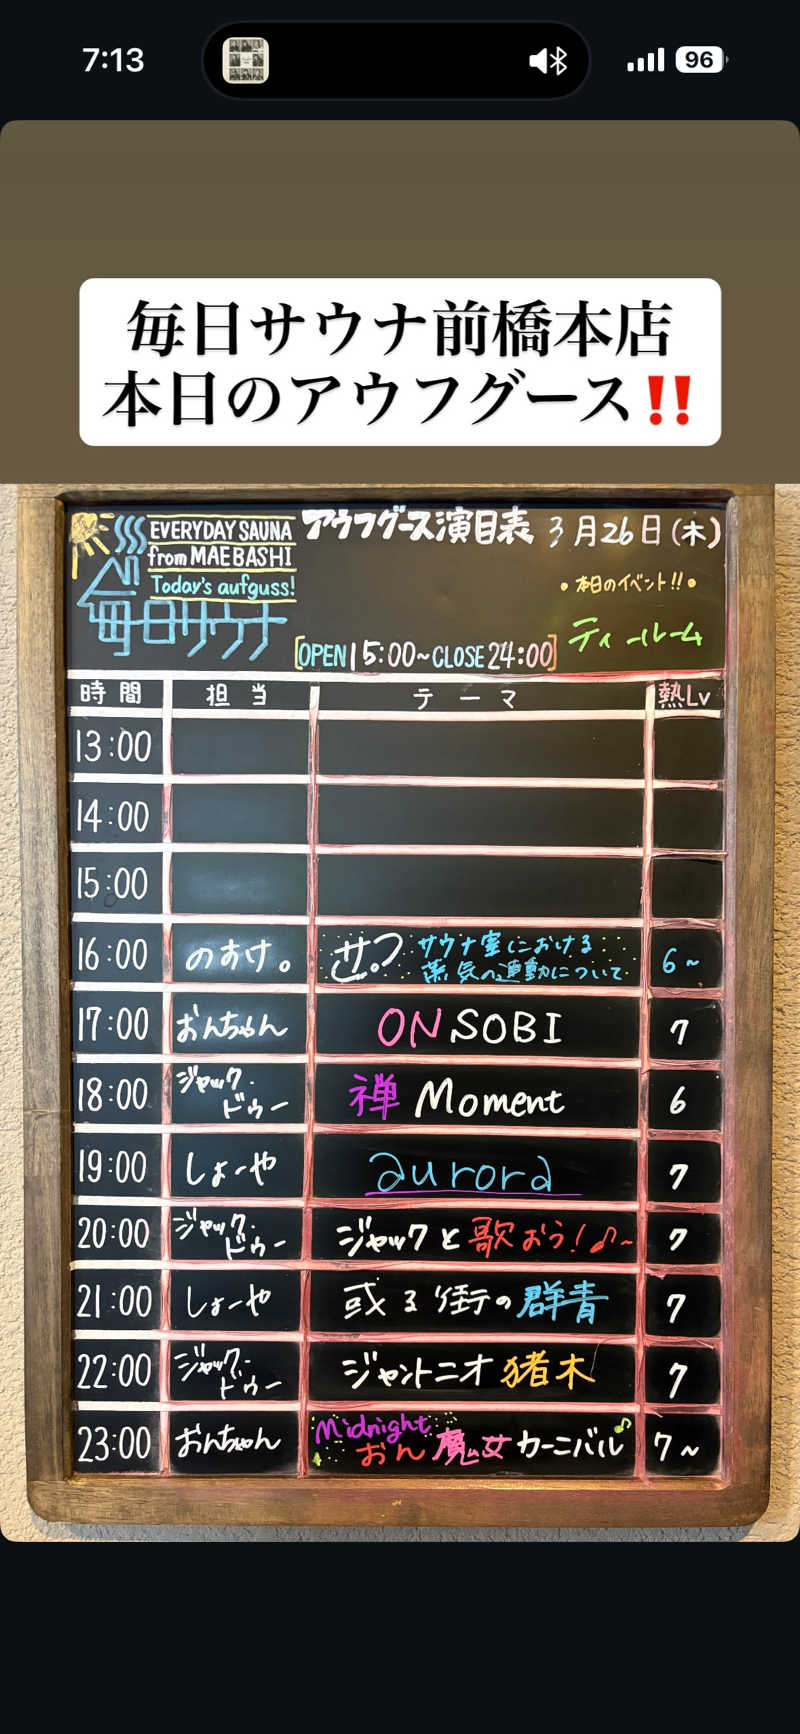 7:13
96
毎日サウナ前橋本店
本日のアウフグース‼️
EVERYDAY SAUNA
from MAEBASHI
Today's aufguss!
毎日サウナ
アウフグース演目表 3月26日(木)
•本日のイベント!!•
ティールーム
[OPEN 15:00~CLOSE 24:00]
時間 担当 テーマ 熱Lv
13:00
14:00
15:00
16:00 のすけ。 サ。ワ サウナ室における蒸気の運動について 6~
17:00 おんちゃん ON SOBI 7
18:00 ジャック・ドゥー 禅 Moment 6
19:00 しょーや aurora 7
20:00 ジャック・ドゥー ジャックと歌おう!♪~ 7
21:00 しょーや 或る街の群青 7
22:00 ジャック・ドゥー ジャントニオ猪木 7
23:00 おんちゃん Midnight おん魔女カーニバル♪ 7~